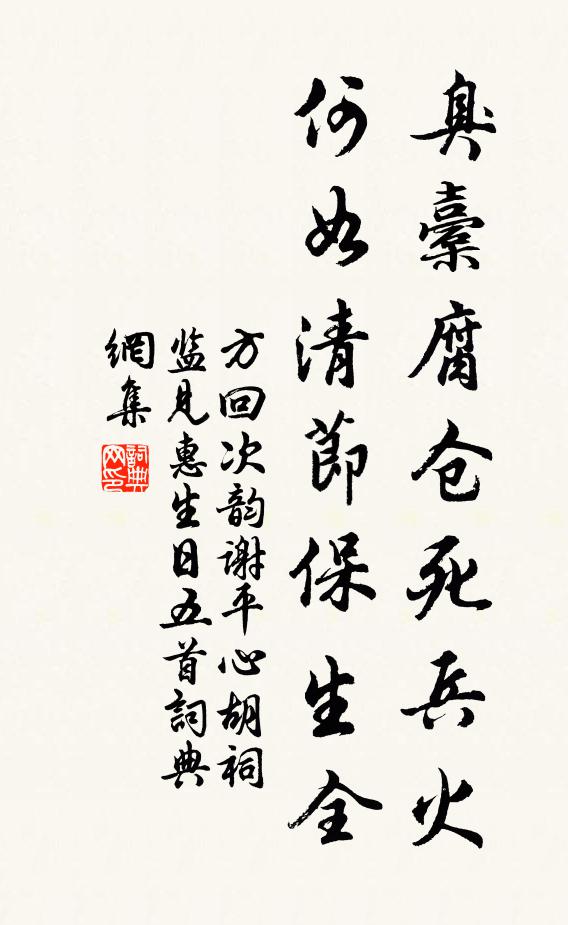 臭橐腐仓死兵火
何如清節保生全
方回次韵谢平心胡祠
监見惠生日五首詞典
網集
詞典
网印